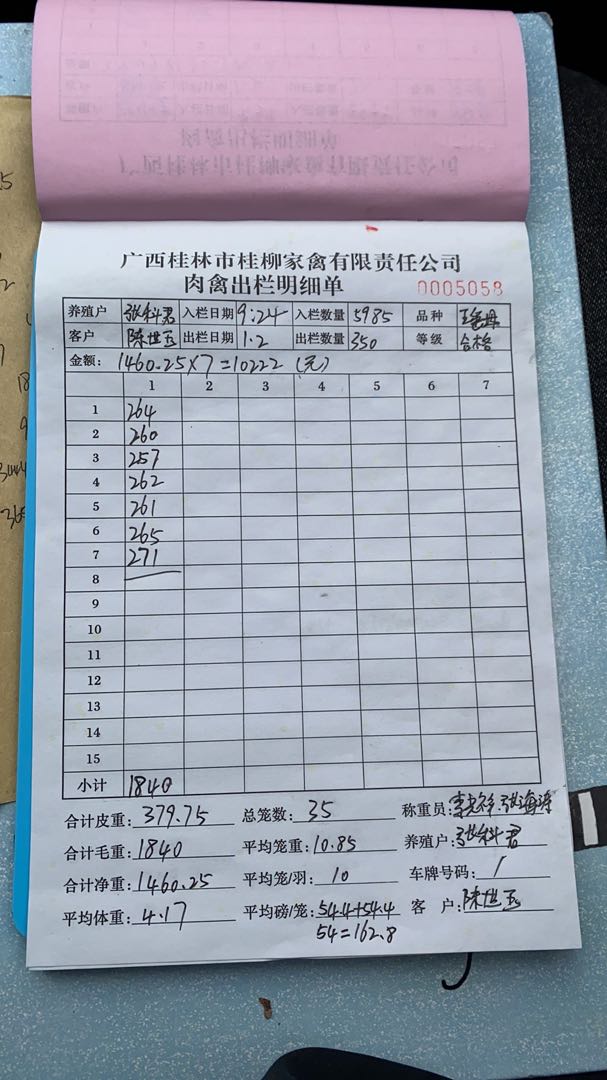 广西桂林市桂柳家禽有限责任公司
肉禽出栏明细单
0005058
养殖户 张科君 入栏日期 9.24 入栏数量 5985 品种
客户 陈世玉 出栏日期 1.2 出栏数量 350 等级 合格
金额: 1460.25×7=10222 (元)
1 2 3 4 5 6 7
1 264
2 260
3 257
4 262
5 261
6 265
7 271
8
9
10
11
12
13
14
15
小计 1840
合计皮重: 379.75 总笼数: 35 称重员:
合计毛重: 1840 平均笼重: 10.85 养殖户: 张科君
合计净重: 1460.25 平均笼/羽: 10 车牌号码: /
平均体重: 4.17 平均磅/笼: 54.4+54.4 客 户: 陈世玉
54=162.8